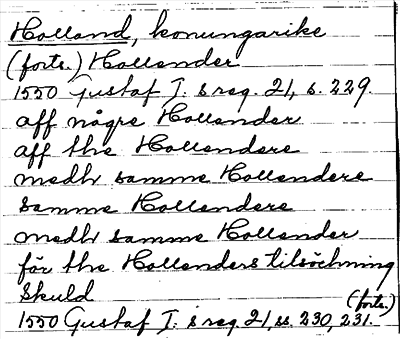 Holland, konungarike
(forts.) Hollender
1550 Gustaf I: s reg. 21, s. 229.
aff någre Hollender
aff the Hollendere
medh samme Hollendere
samme Hollendere
medh samme Hollender
för the Hollenders tilsöchning
skuld (forts.)
1550 Gustaf I: s reg. 21, ss. 230, 231.